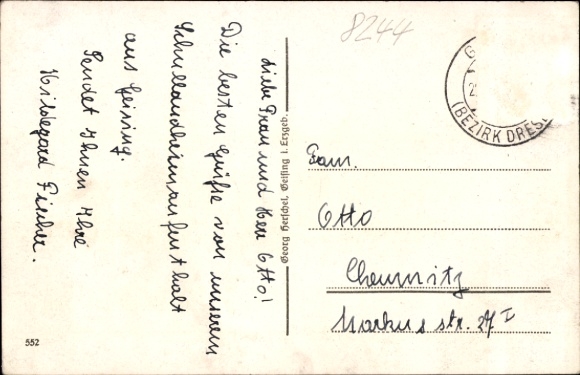 8244
Liebe Frau und Herr Otto!
Die besten Grüße von unserem
Schullandheimaufenthalt
aus Geising.
Sendet Ihnen Ihre
Hildegard Fischer.
Georg Herschel, Geising i. Erzgeb.
Fam.
Otto
Chemnitz
Markus str. 27 I
(BEZIRK DRES
552